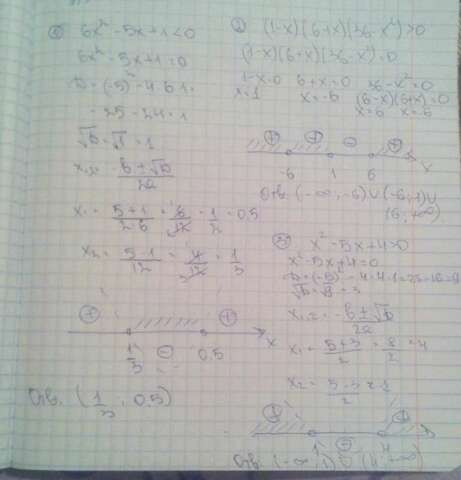 ① 6x² - 5x + 1 < 0
6x² - 5x + 1 = 0
D = (-5)² - 4·6·1 =
= 25 - 24 = 1
√D = √1 = 1
x₁,₂ = -b ± √D / 2a
x₁ = 5+1 / 2·6 = 6/12 = 1/2 = 0,5
x₂ = 5-1 / 12 = 4/12 = 1/3
+ - +
1/3 0,5 x
Отв. (1/3; 0,5)
2) (1-x)(6+x)(36-x²) > 0
(1-x)(6+x)(36-x²) = 0
1-x=0 6+x=0 36-x²=0
x=1 x=-6 (6-x)(6+x)=0
x=6 x=-6
+ + - +
-6 1 6 x
Отв. (-∞; -6) ∪ (-6; 1) ∪
(6; +∞)
③ x² - 5x + 4 > 0
x² - 5x + 4 = 0
D = (-5)² - 4·4·1 = 25 - 16 = 9
√D = √9 = 3
x₁,₂ = -b ± √D / 2a
x₁ = 5+3 / 2 = 8/2 = 4
x₂ = 5-3 / 2 = 1
+ - +
1 4
Отв. (-∞; 1) ∪ (4; +∞)